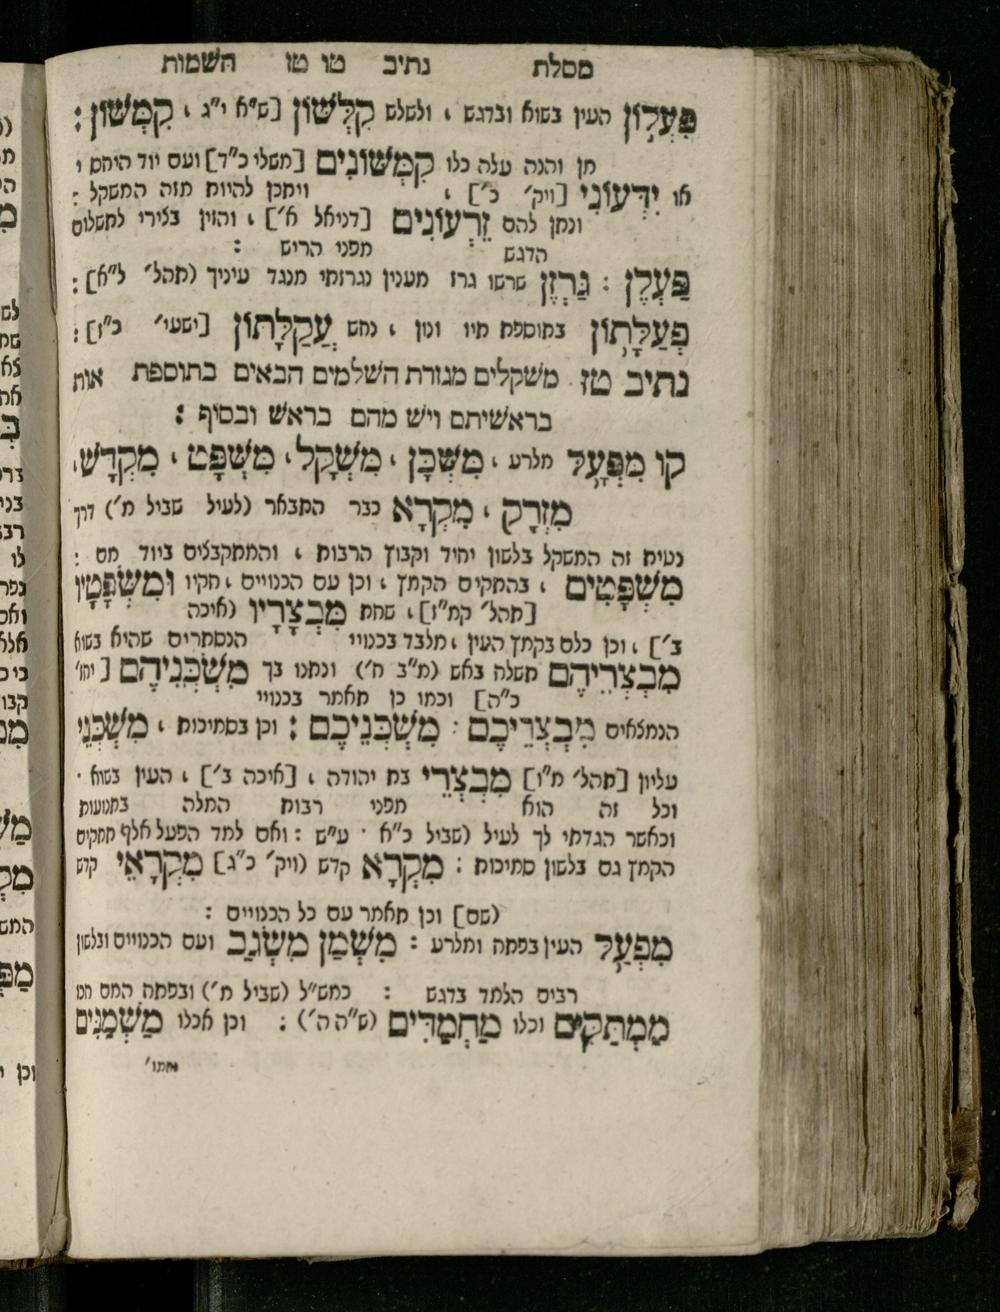 מסלת נתיב טו טז השמות
פִּעְלוֹן העין בשוא ובדגש ، ולשלש קִלְּשׁוֹן [ש״א י״ג ، קִמְּשׁוֹן :
מן והנה עלה כלו קִמְּשׁוֹנִים [משלי כ״ד] ועם יוד היחס י
או יִדְּעוֹנִי [ויק׳ כ׳] ، ויתכן להיות מזה המשקל :
ונתן להם זֵרְעוֹנִים [דניאל א׳] ، והזין בצירי לתשלום
הדגש מפני הריש :
פַּעְלֶן : גַּרְזֶן שרשו גרז מענין נגרזתי מנגד עיניך (תהל׳ ל״א] :
פְּעַלָּתוֹן בתוספת תיו ונון ، נחש עֲקַלָּתוֹן [ישעי׳ כ״ז] :
נתיב טז משקלים מגזרת השלמים הבאים בתוספת אות
בראשיתם ויש מהם בראש ובסוף :
קו מִפְּעָל מלרע ، מִשְׁכָּן ، מִשְׁקָל ، מִשְׁפָּט ، מִקְדָּשׁ ،
מִזְרָק ، מִקְרָא כבר התבאר (לעיל שביל מ׳) דרך
נטית זה המשקל בלשון יחיד וקבוץ הרבות ، והמתקבצים ביוד מם :
מִשְׁפָּטִים ، בהתקים הקמץ ، וכן עם הכנויים ، חקיו וּמִשְׁפָּטָיו
[תהל׳ קמ״ז] ، שחת מִבְצָרָיו (איכה
ב׳] ، וכן כלם בקמץ העין ، מלבד בכנויי הנסתרים שהיא בשוא
מִבְצְרֵיהֶם תשלח באש (מ״ב ח׳) ונתנו בך מִשְׁכְּנֵיהֶם [יחז׳
כ״ה] וכמו כן תאמר בכנויי
הנמצאים מִבְצְרֵיכֶם : מִשְׁכְּנֵיכֶם : וכן בסמיכות ، מִשְׁכְּנֵי
עליון [תהל׳ מ״ו] מִבְצְרֵי בת יהודה ، [איכה ב׳] ، העין בשוא ·
וכל זה הוא מפני רבות המלה בתנועות
וכאשר הגדתי לך לעיל (שביל כ״א · ע״ש : ואם למד הפעל אלף תתקים
הקמץ גם בלשון סמיכות : מִקְרָא קדש (ויק׳ כ״ג] מִקְרָאֵי קדש
(שם] וכן תאמר עם כל הכנויים :
מִפְעַל העין בפתח ומלרע : מִשְׁמַן מִשְׂגַּב ועם הכנויים ובלשון
רבים הלמד בדגש : כמש״ל (שביל מ׳) ובפתח המם חכו
מַמְתַּקִּים וכלו מַחֲמַדִּים (ש״ה ה׳) : וכן אכלו מַשְׁמַנִּים